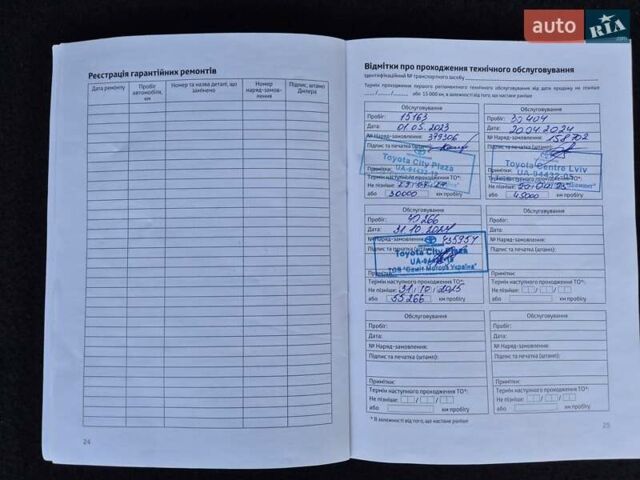 auto RIA
.com
Реєстрація гарантійних ремонтів
Дата ремонту
Пробіг автомобіля, км
Номер та назва деталі, що замінено
Номер наряд-замовлення
Підпис, штамп Дилера
24
Відмітки про проходження технічного обслуговування
Ідентифікаційний № транспортного засобу
Термін проходження першого регламентного технічного обслуговування від дати продажу не пізніше
або 15 000 км, в залежності від того, що настане раніше
Обслуговування
Пробіг: 15163
Дата: 01.05.2023
№ Наряд-замовлення: 379306
Підпис та печатка (штамп):
Toyota City Plaza
UA-94432-18
Примітки:
Термін наступного проходження ТО*:
Не пізніше:
або 30000 км пробігу
Обслуговування
Пробіг: 30 404
Дата: 20.04.2024
№ Наряд-замовлення: 158702
Підпис та печатка (штамп):
Toyota Centre Lviv
UA-94432-05
Примітки:
Термін наступного проходження ТО*:
Не пізніше: 20.04.25
або 45000 км пробігу
Обслуговування
Пробіг: 40 266
Дата: 31.10.2024
№ Наряд-замовлення: 435954
Підпис та печатка (штамп):
Toyota City Plaza
UA-94432-18
ТОВ "Саміт Моторз Україна"
Термін наступного проходження ТО*:
Не пізніше: 31.10.2025
або 55266 км пробігу
Обслуговування
Пробіг:
Дата:
№ Наряд-замовлення:
Підпис та печатка (штамп):
Примітки:
Термін наступного проходження ТО*:
Не пізніше: / /
або км пробігу
Обслуговування
Пробіг:
Дата:
№ Наряд-замовлення:
Підпис та печатка (штамп):
Примітки:
Термін наступного проходження ТО*:
Не пізніше: / /
або км пробігу
Обслуговування
Пробіг:
Дата:
№ Наряд-замовлення:
Підпис та печатка (штамп):
Примітки:
Термін наступного проходження ТО*:
Не пізніше: / /
або км пробігу
* В залежності від того, що настане раніше
25